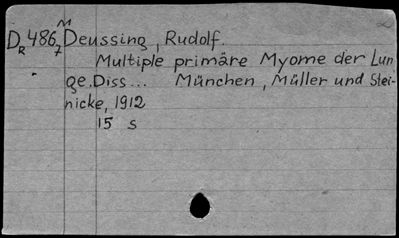 M
DR486,7 Deussing, Rudolf.
Multiple primäre Myome der Lun-
ge. Diss... München, Müller und Stei-
nicke, 1912
15 s